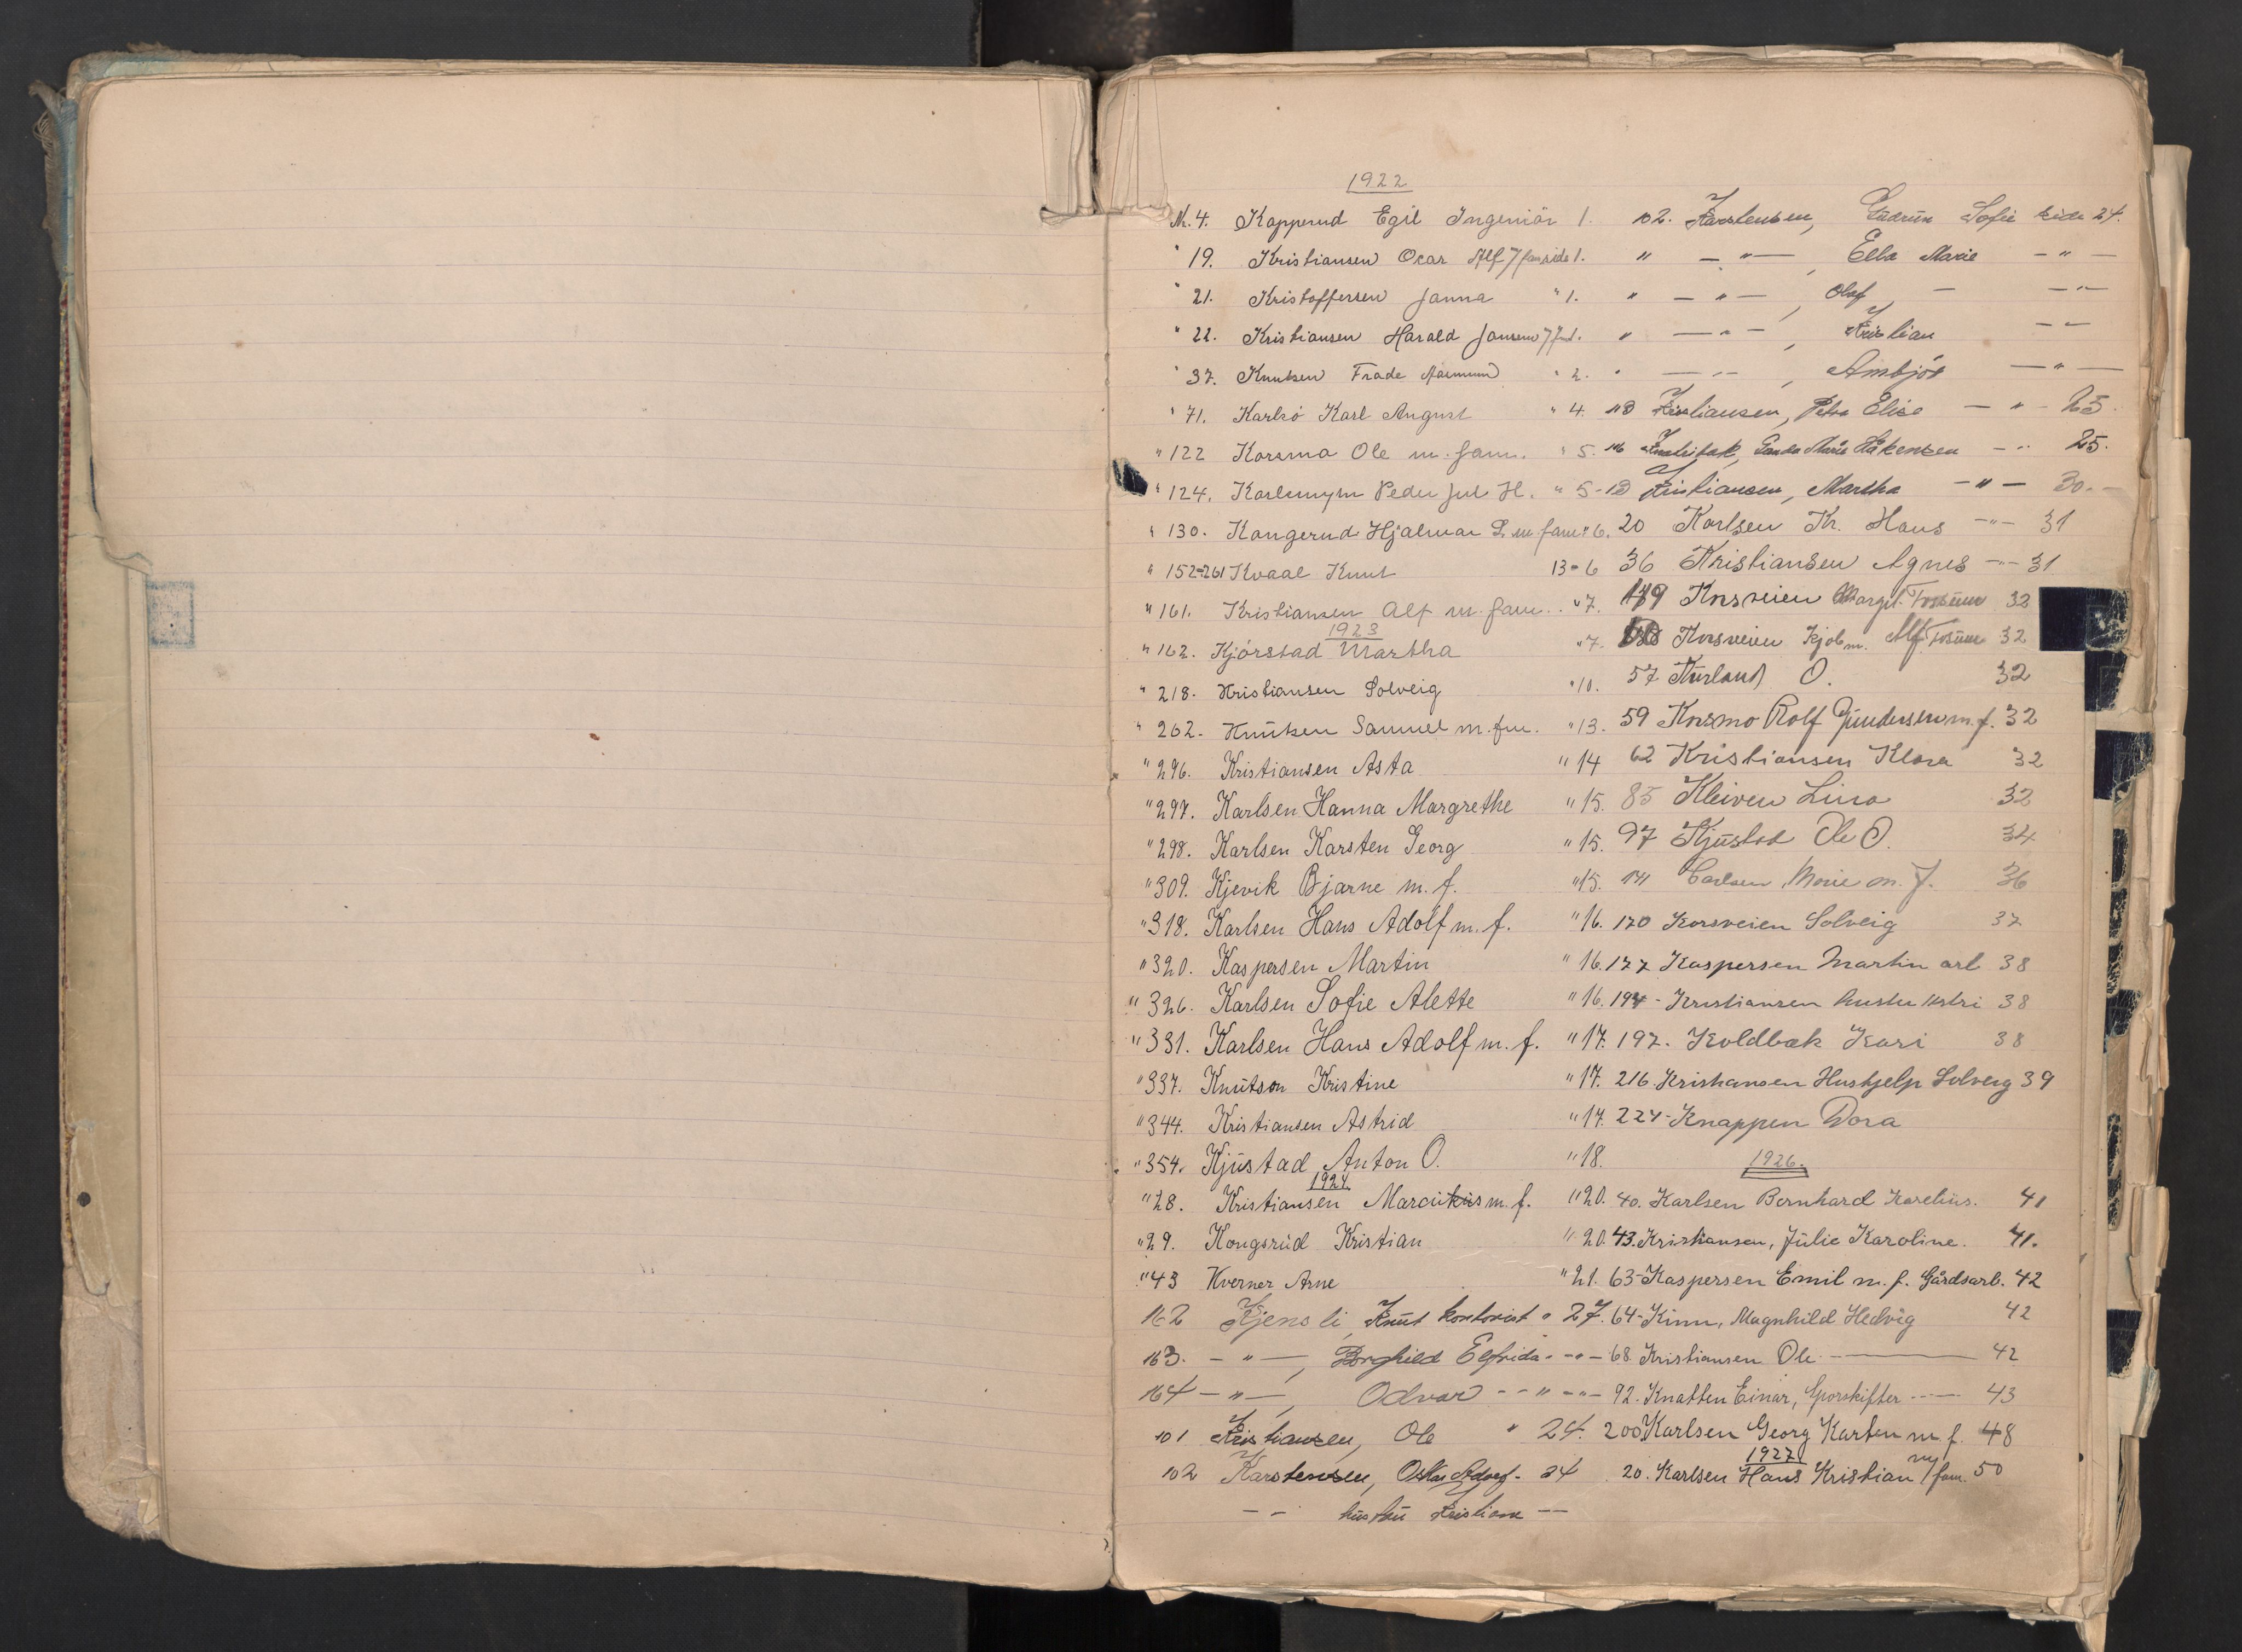 1922
Nr. 4. Kapperud Egil Ingeniör 1.
" 19. Kristiansen Oscar Alf 7 fam side 1.
" 21. Kristoffersen Janna " 1.
" 22. Kristiansen Harald Jansen 7 fam 1.
" 37. Knutsen Frade " 2.
" 71. Karlsö Karl August " 4.
" 122 Korsmo Ole m. fam. " 5.
" 124. Karlsmyrn Peder Jul H. " 5-
" 130. Kongerud Hjalmar L. m fam " 6.
" 152-261 Kvaal Knut 13 " 6
" 161. Kristiansen Alf m. fam. " 7.
1923
" 162. Kjörstad Martha " 7.
" 218. Kristiansen Solveig " 10.
" 262. Knutsen Samuel m. fm. " 13.
" 296. Kristiansen Asta " 14
" 297. Karlsen Hanna Margrethe " 15.
" 298. Karlsen Karsten Georg " 15.
" 309. Kjevik Bjarne m. f. " 15.
" 318. Karlsen Hans Adolf m. f. " 16.
" 320. Kaspersen Martin " 16.
" 326. Karlsen Sofie Alette " 16.
" 331. Karlsen Hans Adolf m. f. " 17.
" 337. Knutson Kristine " 17.
" 344. Kristiansen Astrid " 17.
" 354. Kjüstad Anton O. " 18.
1924.
" 28. Kristiansen m. f. " 20.
" 29. Kongsrüd Kristian " 20.
" 43 Kverner Arne " 21.
162 Kjensli, Knüt kontorist " 27.
163. - " -, Borghild Elfrida - " -
164 - " -, Odvar - " -
101 Kristiansen, Ole " 24.
102 Karstensen, Oskar - 24
- " - hüstrü Kristiane - -
102. Karstensen, Güdrün Sofie side 24.
" - " -, Ella Marie - " -
" - " -, Olaf - " -
" - " -, Kristian - " -
" - " -, Ambjör - " -
Kristiansen, Petra Elise - " - 25.
Marie Håkensen - " - 25.
Kristiansen, Martha - " - 30.
20 Karlsen Kr. Hans - " - 31
36 Kristiansen Agnes - " - 31
179 Korsveien Margit Fossum 32
Korsveien Kjøbm. Alf Fossum 32
57 Kürland O. 32
59 Korsmo Rolf Gundersen m. f. 32
62 Kristiansen Klara 32
85 Kleiven Lina 32
97 Kjüstad Ole O. 34
141 Carlsen, Marie m. f. 36
170 Korsveien Solveig 37
177 Kaspersen Martin arb 38
194 - Kristiansen 38
197. Koldbæk Kari 38
216. Kristiansen Hushjelp Solveig 39
224 - Knappen Dora
1926.
40. Karlsen Bernhard Karelius. 41
43. Kristiansen, Julie Karoline. 41.
63 - Kaspersen Emil m. f. Gårdsarb. 42
64 - Kinn, Magnhild Hedvig 42
68 Kristiansen Ole 42
92. Knatten Einar, Sporskifter 43
200 Karlsen Georg Karsten m f. 48
1927
20. Karlsen Hans Kristian m/fam. 50